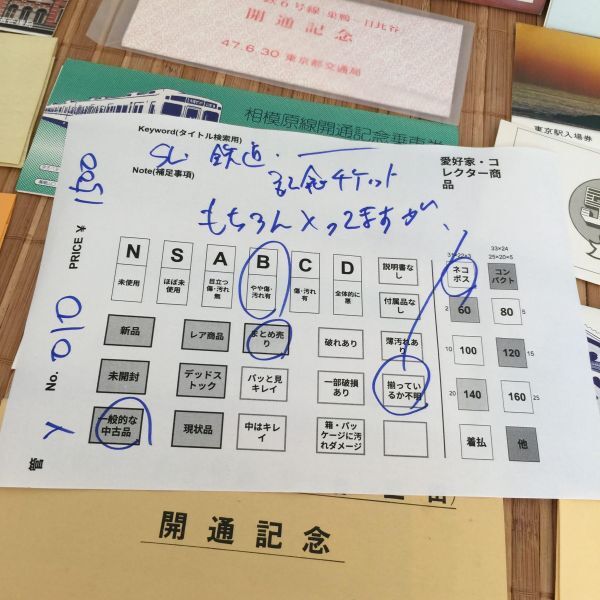 鉄6号線 巣鴨―日比谷
開通記念
47.6.30 東京都交通局
相模原線開通記念乗車券
東京駅入場券
Keyword(タイトル検索用)
SL 鉄道
Note(補足事項)
記念チケット
愛好家・コレクター商品
PRICE ¥
No.
管
N 未使用
S ほぼ未使用
A 目立つ傷・汚れ無
B やや傷・汚れ有
C 傷・汚れ有
D 全体的に悪
説明書なし
付属品なし
31×22×3
ネコポス
33×24
25×20×5
コンパクト
新品
レア商品
まとめ売り
破れあり
薄汚れあり
2 60
80 5
未開封
デッドストック
パッと見キレイ
一部破損あり
揃っているか不明
10 100
120 15
20 140
160 25
一般的な中古品
現状品
中はキレイ
箱・パッケージに汚れダメージ
着払
他
開通記念